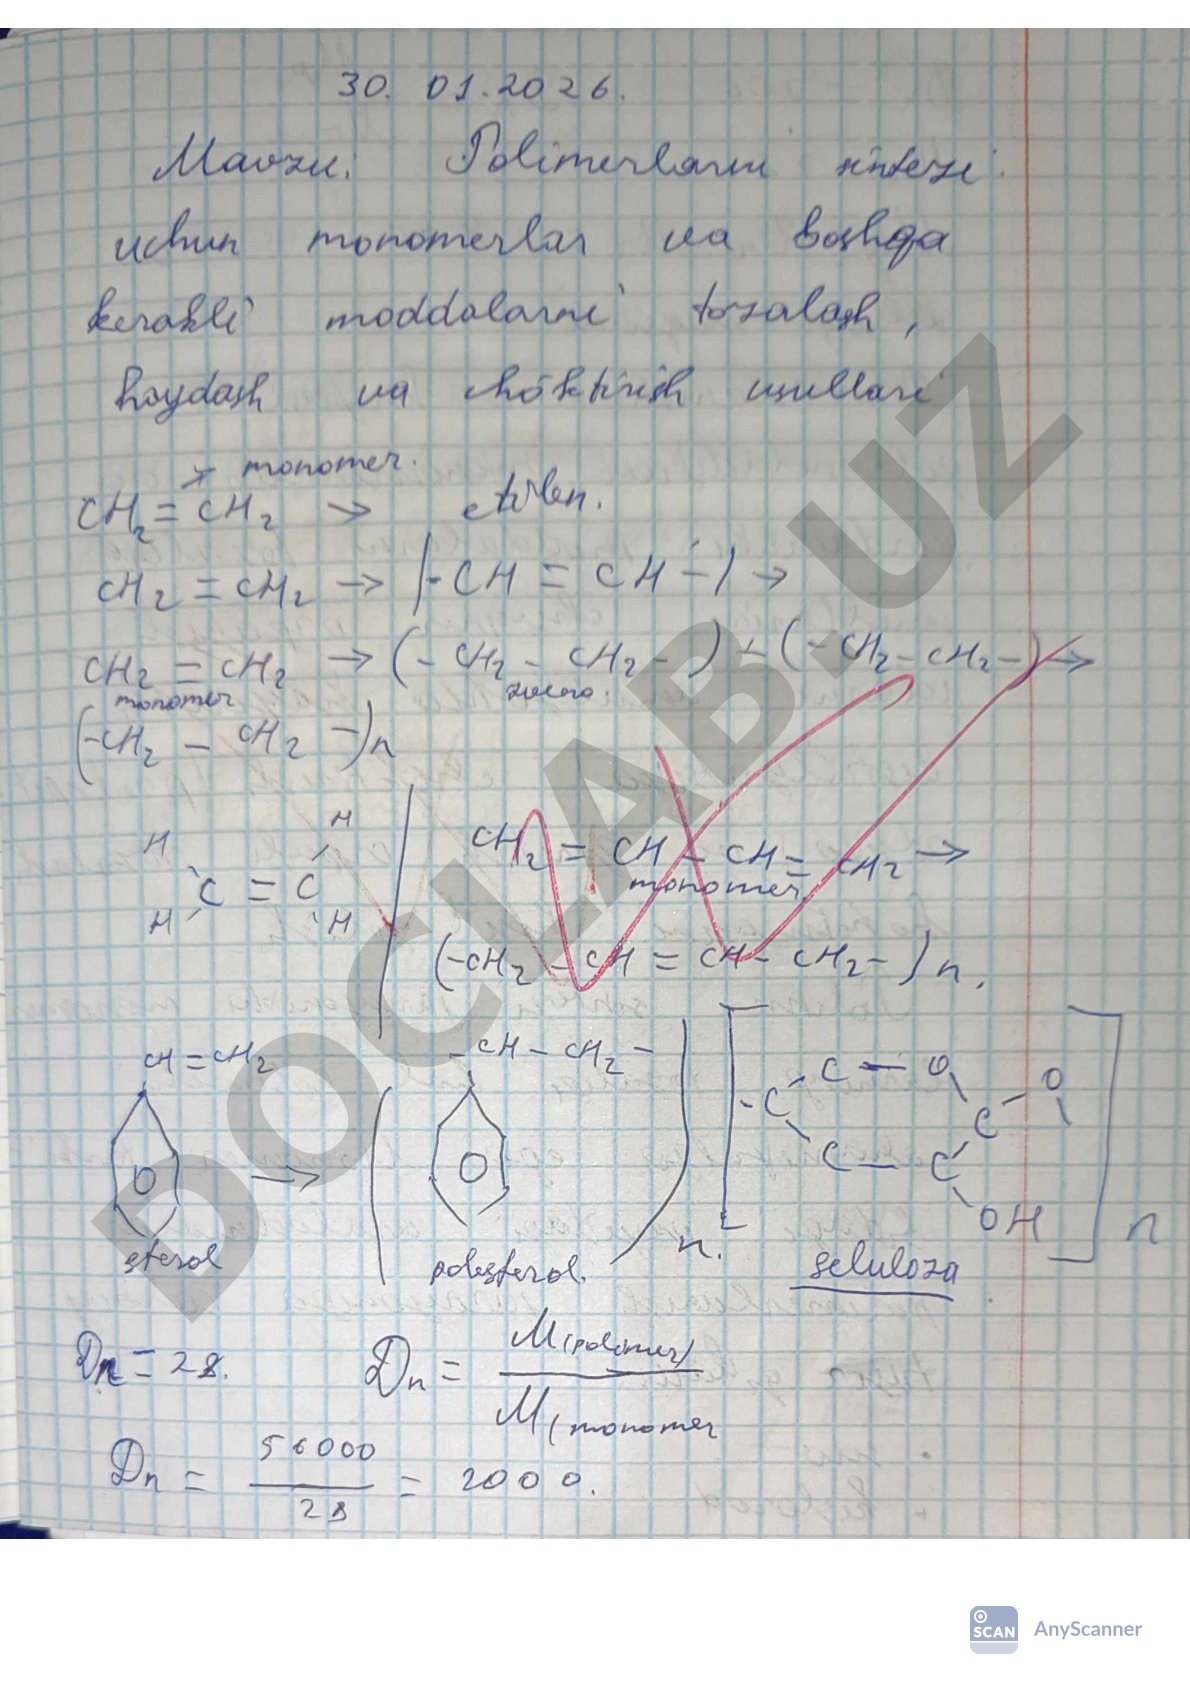 30. 01. 2026.
Mavzu: Polimerlarni sintezi
uchun monomerlar va boshqa
kerakli moddalarni tozalash,
haydash va cho'ktirish usullari
monomer.
CH2 = CH2 → etilen.
CH2 = CH2 → (-CH = CH-) →
CH2 = CH2 → (- CH2 - CH2 -) + (- CH2 - CH2 -) →
monomer zveno.
(-CH2 - CH2 -)n
H H
C = C
H H
CH2 = CH - CH = CH2 →
monomer
(-CH2 - CH = CH - CH2 -)n.
CH = CH2 → - CH - CH2 - n.
sterol polesterol.
C — O
- C C - O
C — C
OH n
seluloza
Dn = 28. Dn = M(polimer) / M(monomer
Dn = 56000 / 28 = 2000.
DOCLAB.UZ
SCAN AnyScanner